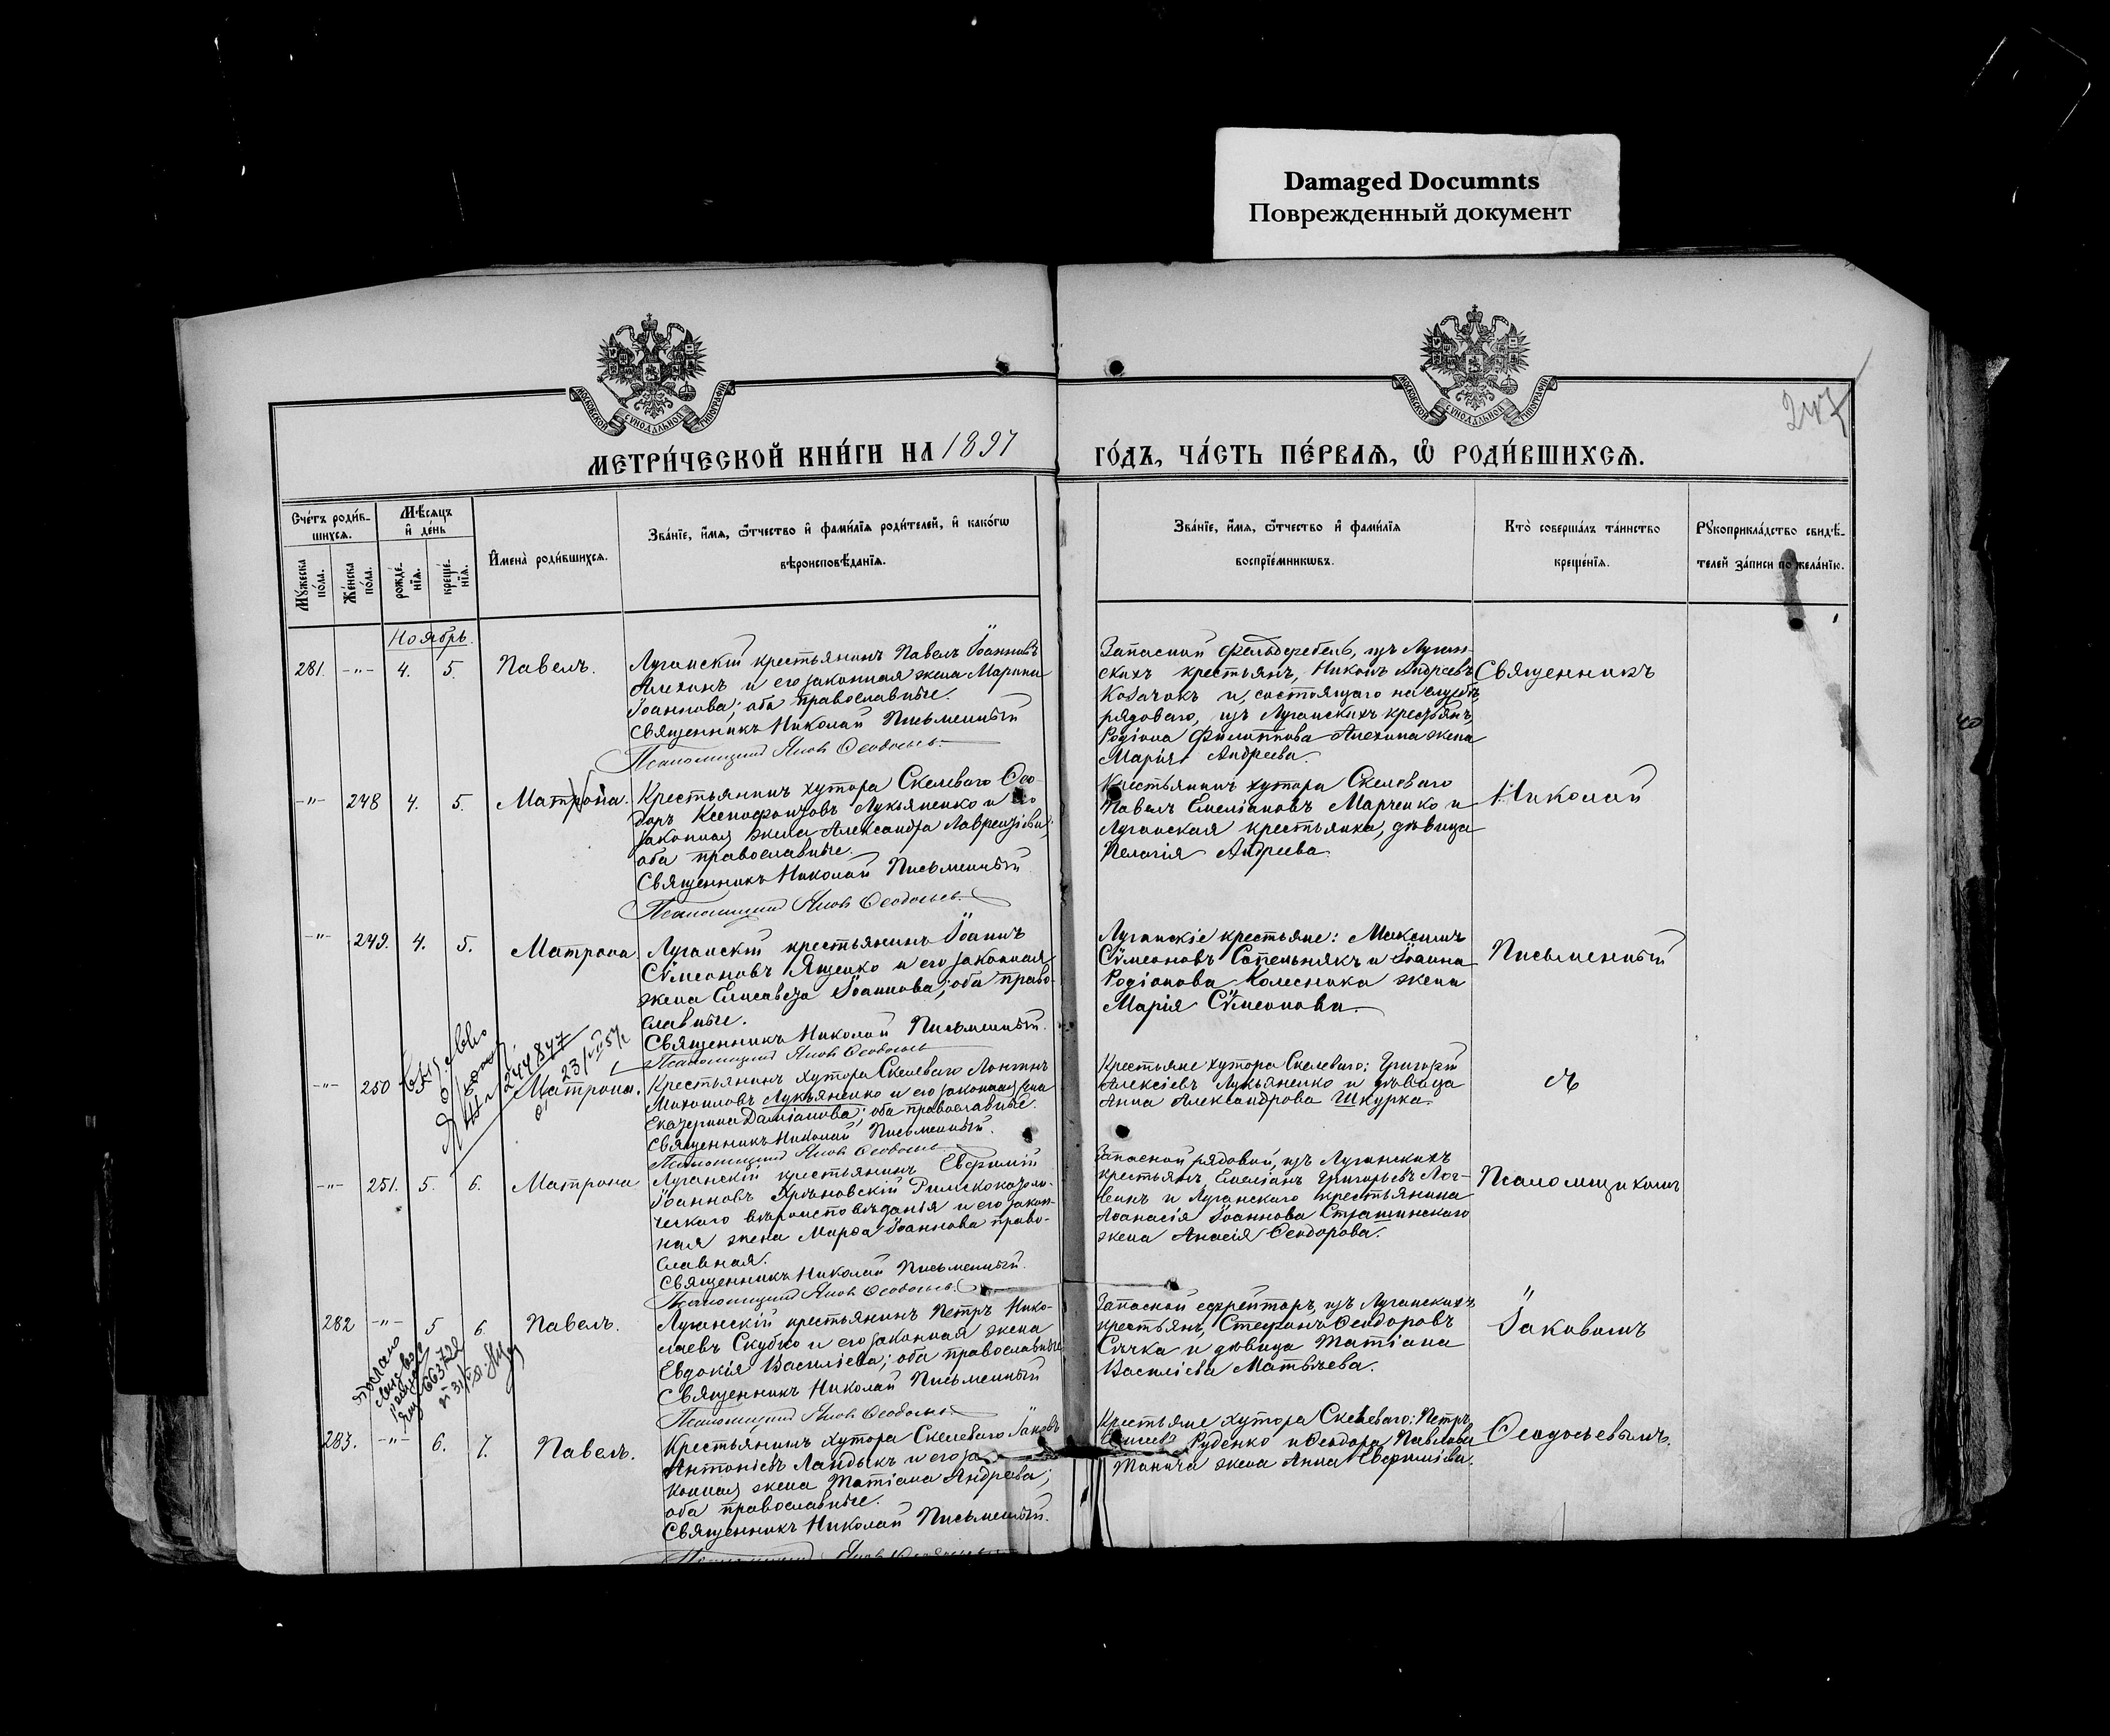 Damaged Documnts
Поврежденный документ
МОСКОВСКОЙ СѴНОДАЛЬНОЙ ТИПОГРАФІИ
МОСКОВСКОЙ СѴНОДАЛЬНОЙ ТИПОГРАФІИ
247
МЕТРИ́ЧЕСКОЙ КНИ́ГИ НА 1897
ГО́ДЪ, ЧА́СТЬ ПЕ́РВАѦ, Ѡ҆ РОДИ́ВШИХСѦ.
Сче́тъ роди́в-
шихсѧ.
Мꙋ́жеска по́ла.
Же́нска по́ла.
Мѣ́сѧцъ
и҆ де́нь
рожде́-
нїѧ.
креще́-
нїѧ.
И҆мена̀ роди́вшихсѧ.
Зва́нїе, и҆́мѧ, ѻ҆́тчество и҆ фами́лїѧ роди́телей, и҆ како́гѡ
вѣроисповѣ́данїѧ.
Зва́нїе, и҆́мѧ, ѻ҆́тчество и҆ фами́лїѧ
воспрїе́мникѡвъ.
Кто̀ соверша́лъ та́инство
креще́нїѧ.
Рꙋкоприкла́дство свидѣ́-
телей за́писи по жела́нїю.
Ноябрь.
281. -"- 4. 5. Павелъ.
Луганскій крестьянинъ Павелъ Іоанновъ
Алехинъ и его законная жена Марина
Іоаннова; оба православные.
Священникъ Николай Письменный
Псаломщикъ Яковъ Ѳеодосьевъ.
Запасной фельдфебель, изъ Луган-
скихъ крестьянъ, Никонъ Андреевъ
Козачокъ и, состоящаго на службѣ,
рядоваго, изъ Луганскихъ крестьянъ,
Родіона Филиппова Алехина жена
Марія Андреева.
Священникъ
-"- 248 4. 5. Матрона.
Крестьянинъ хутора Скелеваго Ѳео-
доръ Ксенофонтовъ Лукьяненко и его
законная жена Александра Лаврентіева;
оба православные.
Священникъ Николай Письменный
Псаломщикъ Яковъ Ѳеодосьевъ.
Крестьянинъ хутора Скелеваго
Павелъ Емеліановъ Марченко и
Луганская крестьянка, дѣвица
Пелагія Андреева.
Николай
-"- 249. 4. 5. Матрона
Луганскій крестьянинъ Іоаннъ
Сѵмеоновъ Ященко и его законная
жена Елисавета Іоаннова; оба право-
славные.
Священникъ Николай Письменный.
Псаломщикъ Яковъ Ѳеодосьевъ
Луганскіе крестьяне: Максимъ
Сѵмеоновъ Сопельнякъ и Іоанна
Родіонова Колесника жена
Марія Сѵмеонова.
Письменный
244847
-"- 250 Матрона.
Крестьянинъ хутора Скелеваго Логинъ
Михаиловъ Лукьяненко и его законная жена
Екатерина Даміанова; оба православные.
Священникъ Николай Письменный.
Псаломщикъ Яковъ Ѳеодосьевъ
Крестьяне хутора Скелеваго: Григорій
Алексіевъ Лукьяненко и дѣвица
Анна Александрова Шкурка.
съ
-"- 251. 5. 6. Матрона
Луганскій крестьянинъ Евфимій
Іоанновъ Римскокатоли-
ческаго вѣроисповѣданія и его закон-
ная жена Марѳа Іоаннова право-
славная.
Священникъ Николай Письменный.
Псаломщикъ Яковъ Ѳеодосьевъ.
Запасной рядовой, изъ Луганскихъ
крестьянъ, Емеліанъ Григорьевъ Лог-
винъ и Луганскаго крестьянина
Аѳанасія Іоаннова Страшинскаго
жена Анасія Ѳеодорова.
Псаломщикомъ
282 -"- 5 6. Павелъ.
Луганскій крестьянинъ Петръ Нико-
лаевъ Скубко и его законная жена
Евдокія Василіева; оба православные
Священникъ Николай Письменный
Псаломщикъ Яковъ Ѳеодосьевъ
Запасной ефрейторъ, изъ Луганскихъ
крестьянъ, Стефанъ Ѳеодоровъ
Сѣчка и дѣвица Татіана
Василіева Матвѣева.
Іаковомъ
66372
283. -"- 6. 7. Павелъ.
Крестьянинъ хутора Скелеваго Іаковъ
Антоніевъ Ландыкъ и его за-
конная жена Татіана Андреева;
оба православные.
Священникъ Николай Письменный.
Крестьяне хутора Скелеваго: Петръ
Руденко и Ѳеодора Павлова
Ткача жена Анна Евфиміева.
Ѳеодосьевымъ.